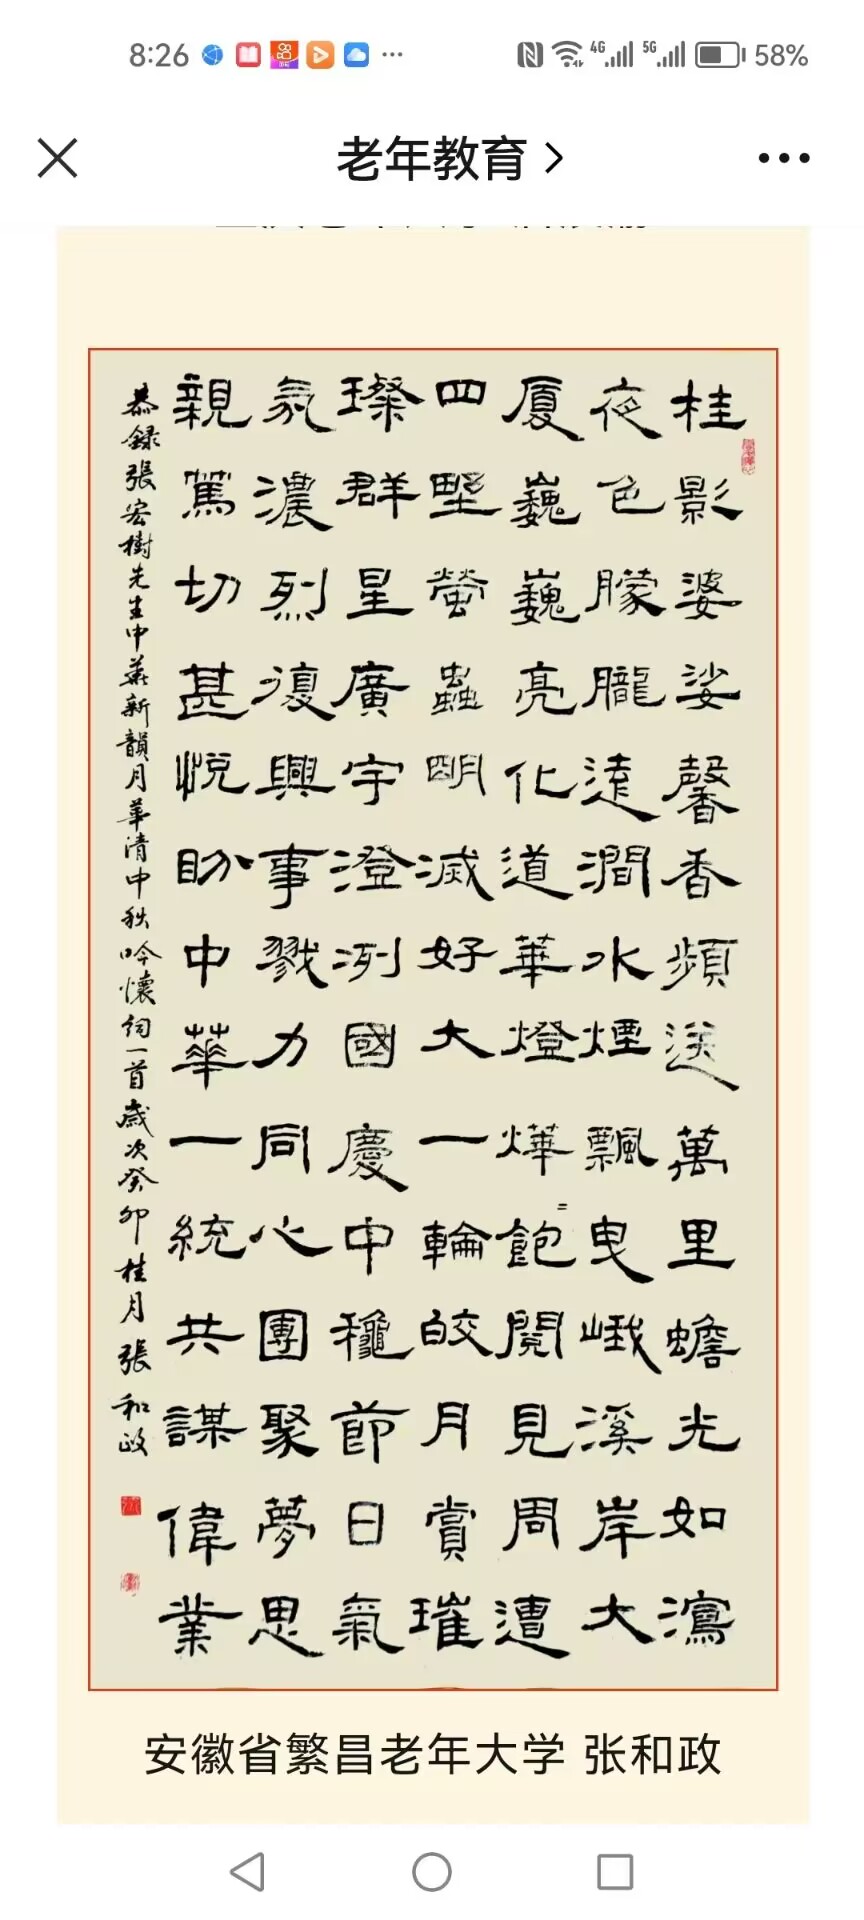 8:26
4G
5G
58%
老年教育
桂影婆娑馨香頻送萬里蟾光如瀉
夜色朦朧遠澗水煙飄曳峨溪岸大
厦巍巍亮化道華燈燁飽閱見周遭
四野螢蟲明滅好大一輪皎月賞璀
璨群星廣宇澄冽國慶中穐節日氣
氛濃烈復興事戮力同心團聚夢思
親篤切甚悅盼中華一統共謀偉業
恭錄張宏樹先生中華新韻月華清中秋吟懷詞一首歲次癸卯桂月張和政
安徽省繁昌老年大学 张和政